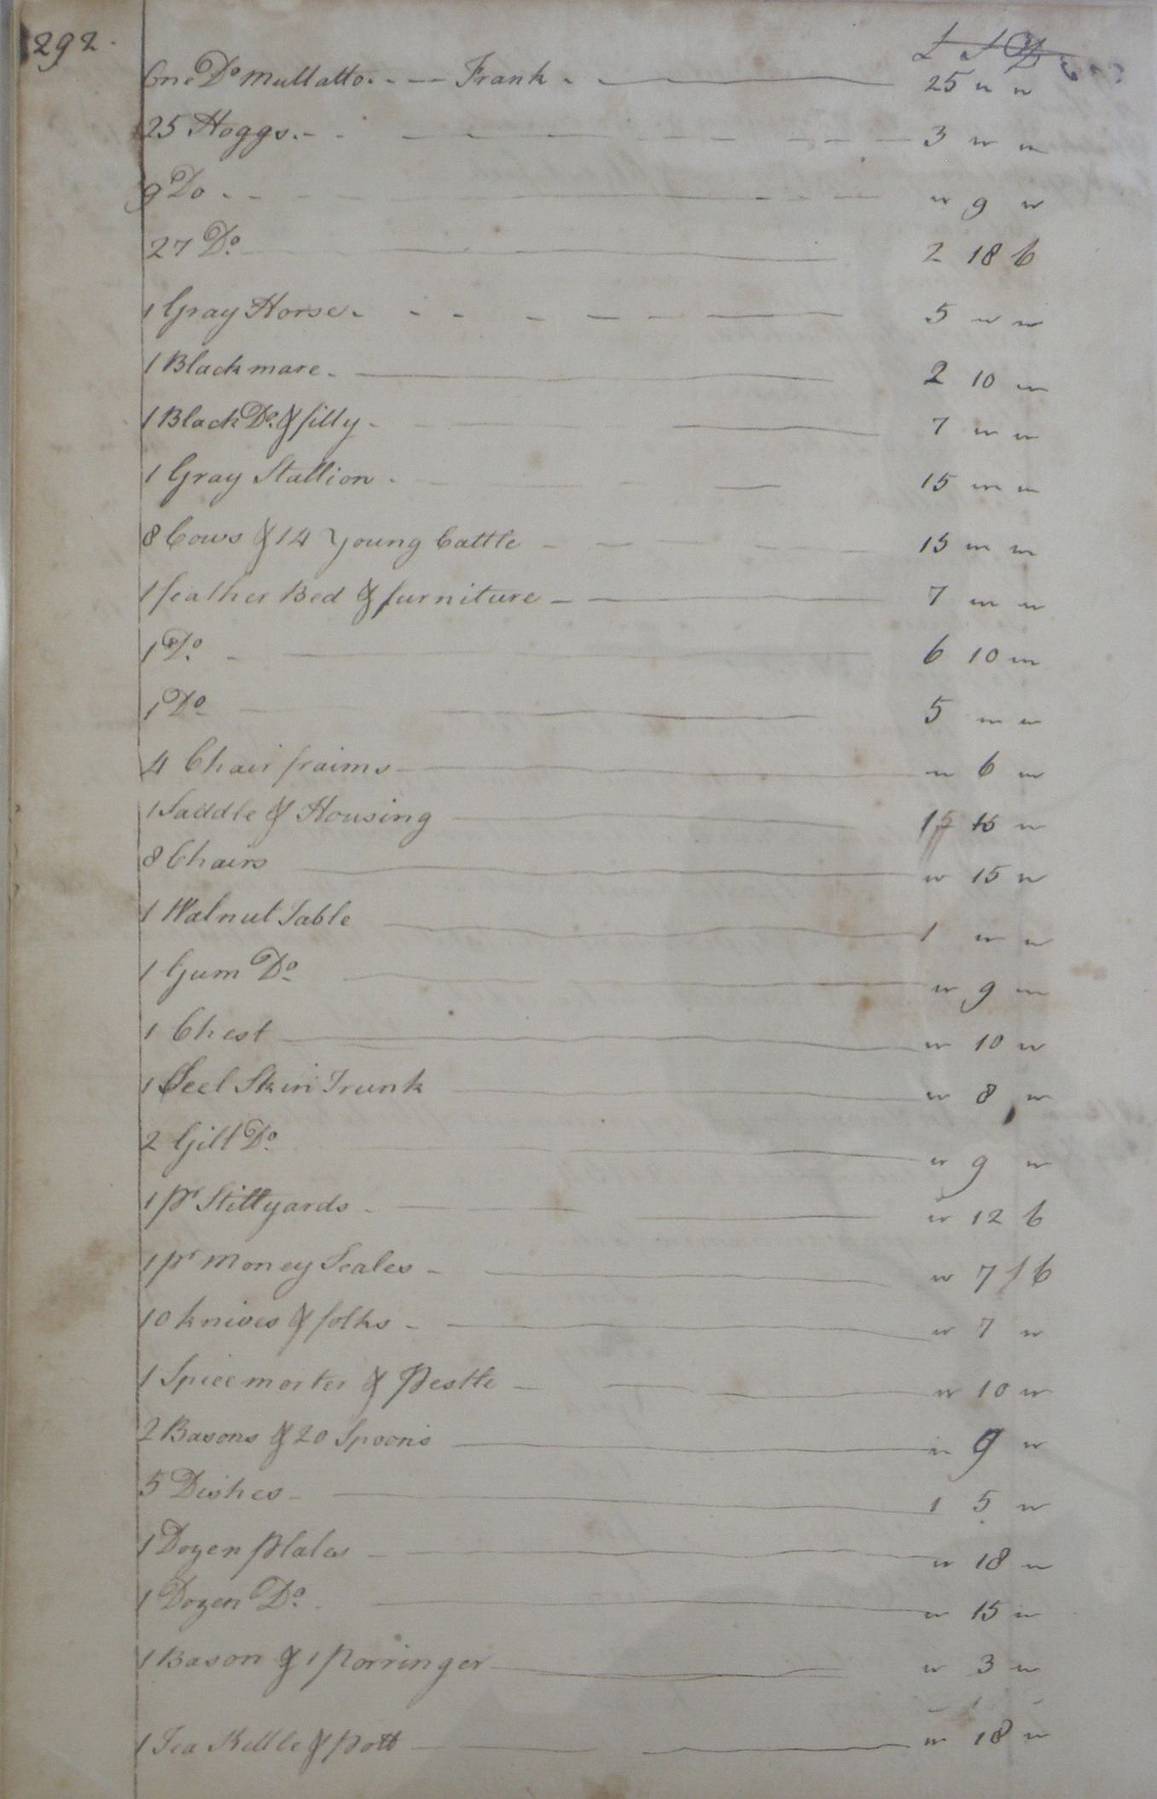 292.
£ S D
One Do Mullatto - - - Frank - 25 " "
25 Hoggs - 3 " "
9 Do - " 9 "
27 Do 2 18 6
1 Gray Horse - 5 " "
1 Black mare - 2 10 "
1 Black Do & filly - 7 " "
1 Gray Stallion - 15 " "
8 Cows & 14 Young Cattle - 15 " "
1 feather Bed & furniture - 7 " "
1 Do - 6 10 "
1 Do 5 " "
4 Chair fraims " 6 "
1 Saddle & Housing 15 "
8 Chairs " 15 "
1 Walnut Table 1 " "
1 Gum Do " 9 "
1 Chest " 10 "
1 Seel Skin Trunk " 8 "
2 Gilt Do " 9 "
1 pr Stillyards - " 12 6
1 pr Money Scales - " 7 6
10 knives & folks - " 7 "
1 Spice morter & Pestle - " 10 "
2 Basons & 20 Spoons " 9 "
5 Dishes - 1 5 "
1 Dozen plates - " 18 "
1 Dozen Do " 15 "
1 Bason & 1 porringer " 3 "
1 Tea Kettle & pott " 18 "